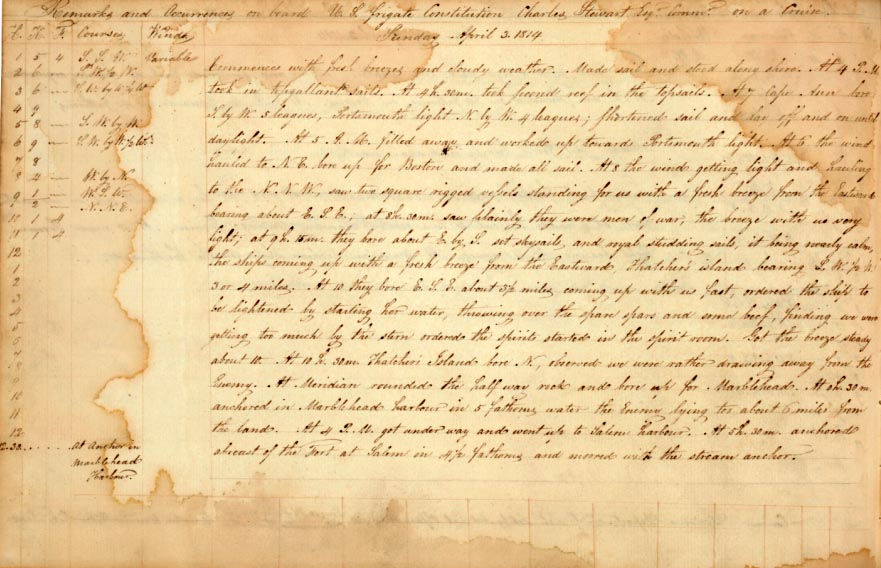 Remarks and Occurrences on board U. S. frigate Constitution Charles Stewart Esqr. Commr. on a Cruise.
H. K. F. Courses Winds Sunday April 3. 1814
1 5 4 S. S. W. Variable
2 6 —
3 6 —
4 9
5 8 — S. W. by W.
6 9 —
7 8
8 4 — W. by N.
9 1 —
9 2 — N. N. E.
10 1 4
11 1 4
12
1
2
3
4
5
6
7
8
9
10
11
12
12.30 .... At Anchor in
Marblehead
Harbour.
Commences with fresh breezes and cloudy weather. Made sail and stood along shore. At 4 P. M.
took in topgallant sails. At 4 h. 30 m. took second reef in the topsails. At 7 Cape Ann bore
S. by W. 5 leagues, Portsmouth light N. by W. 4 leagues; shortened sail and lay off and on until
daylight. At 5 A. M. filled away and worked up towards Portsmouth light. At 6 the wind
hauled to N. E. bore up for Boston and made all sail. At 8 the wind getting light and hauling
to the N. N. W, saw two square rigged vessels standing for us with a fresh breeze from the Eastward
bearing about E. S. E; at 8 h. 30 m. saw plainly they were men of war, the breeze with us very
light; at 9 h. 15 m. they bore about E. by S. set skysails, and royal studding sails, it being nearly calm,
the ships coming up with a fresh breeze from the Eastward, Thatcher's island bearing S. W. 1/2 W
3 or 4 miles. At 10 they bore E. S. E. about 3 1/2 miles coming up with us fast, ordered the ship to
be lightened by starting her water, throwing over the spare spars and some beef, finding we were
getting too much by the stern ordered the spirits started in the spirit room. Got the breeze steady
about 10. At 10 h. 30 m. Thatcher's Island bore N, observed we were rather drawing away from the
Enemy. At Meridian rounded the half way rock and bore up for Marblehead. At 0 h. 30 m.
anchored in Marblehead harbour in 5 fathoms water the Enemy lying too about 6 miles from
the land. At 4 P. M. got under way and went up to Salem harbour. At 5 h. 30 m. anchored
abreast of the Fort at Salem in 4 1/2 fathoms and moored with the stream anchor.